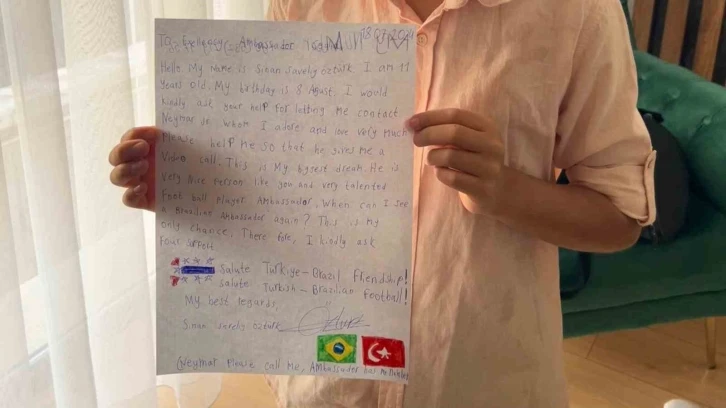 Ambassador
Hello. My name is Sinan Savely Öztürk I am 11
years old. My birthday is 8 Agust. I would
kindly ask your help for letting me contact
Neymar Jr. whom I adore and love very much
Please help me so that he gives me a
Video call. This is My biggest dream. He is
very Nice Person like you and very talented
Foot ball Player Ambassador. When can I see
a Brazilian Ambassador again? This is my
only chance. There fore, I kindly ask
Your
Salute Türkiye-Brazil Friendship!
Salute Turkish-Brazilian football!
My best regards,
Sinan Savely Öztürk
(Neymar Please call Me, Ambassador has My Number